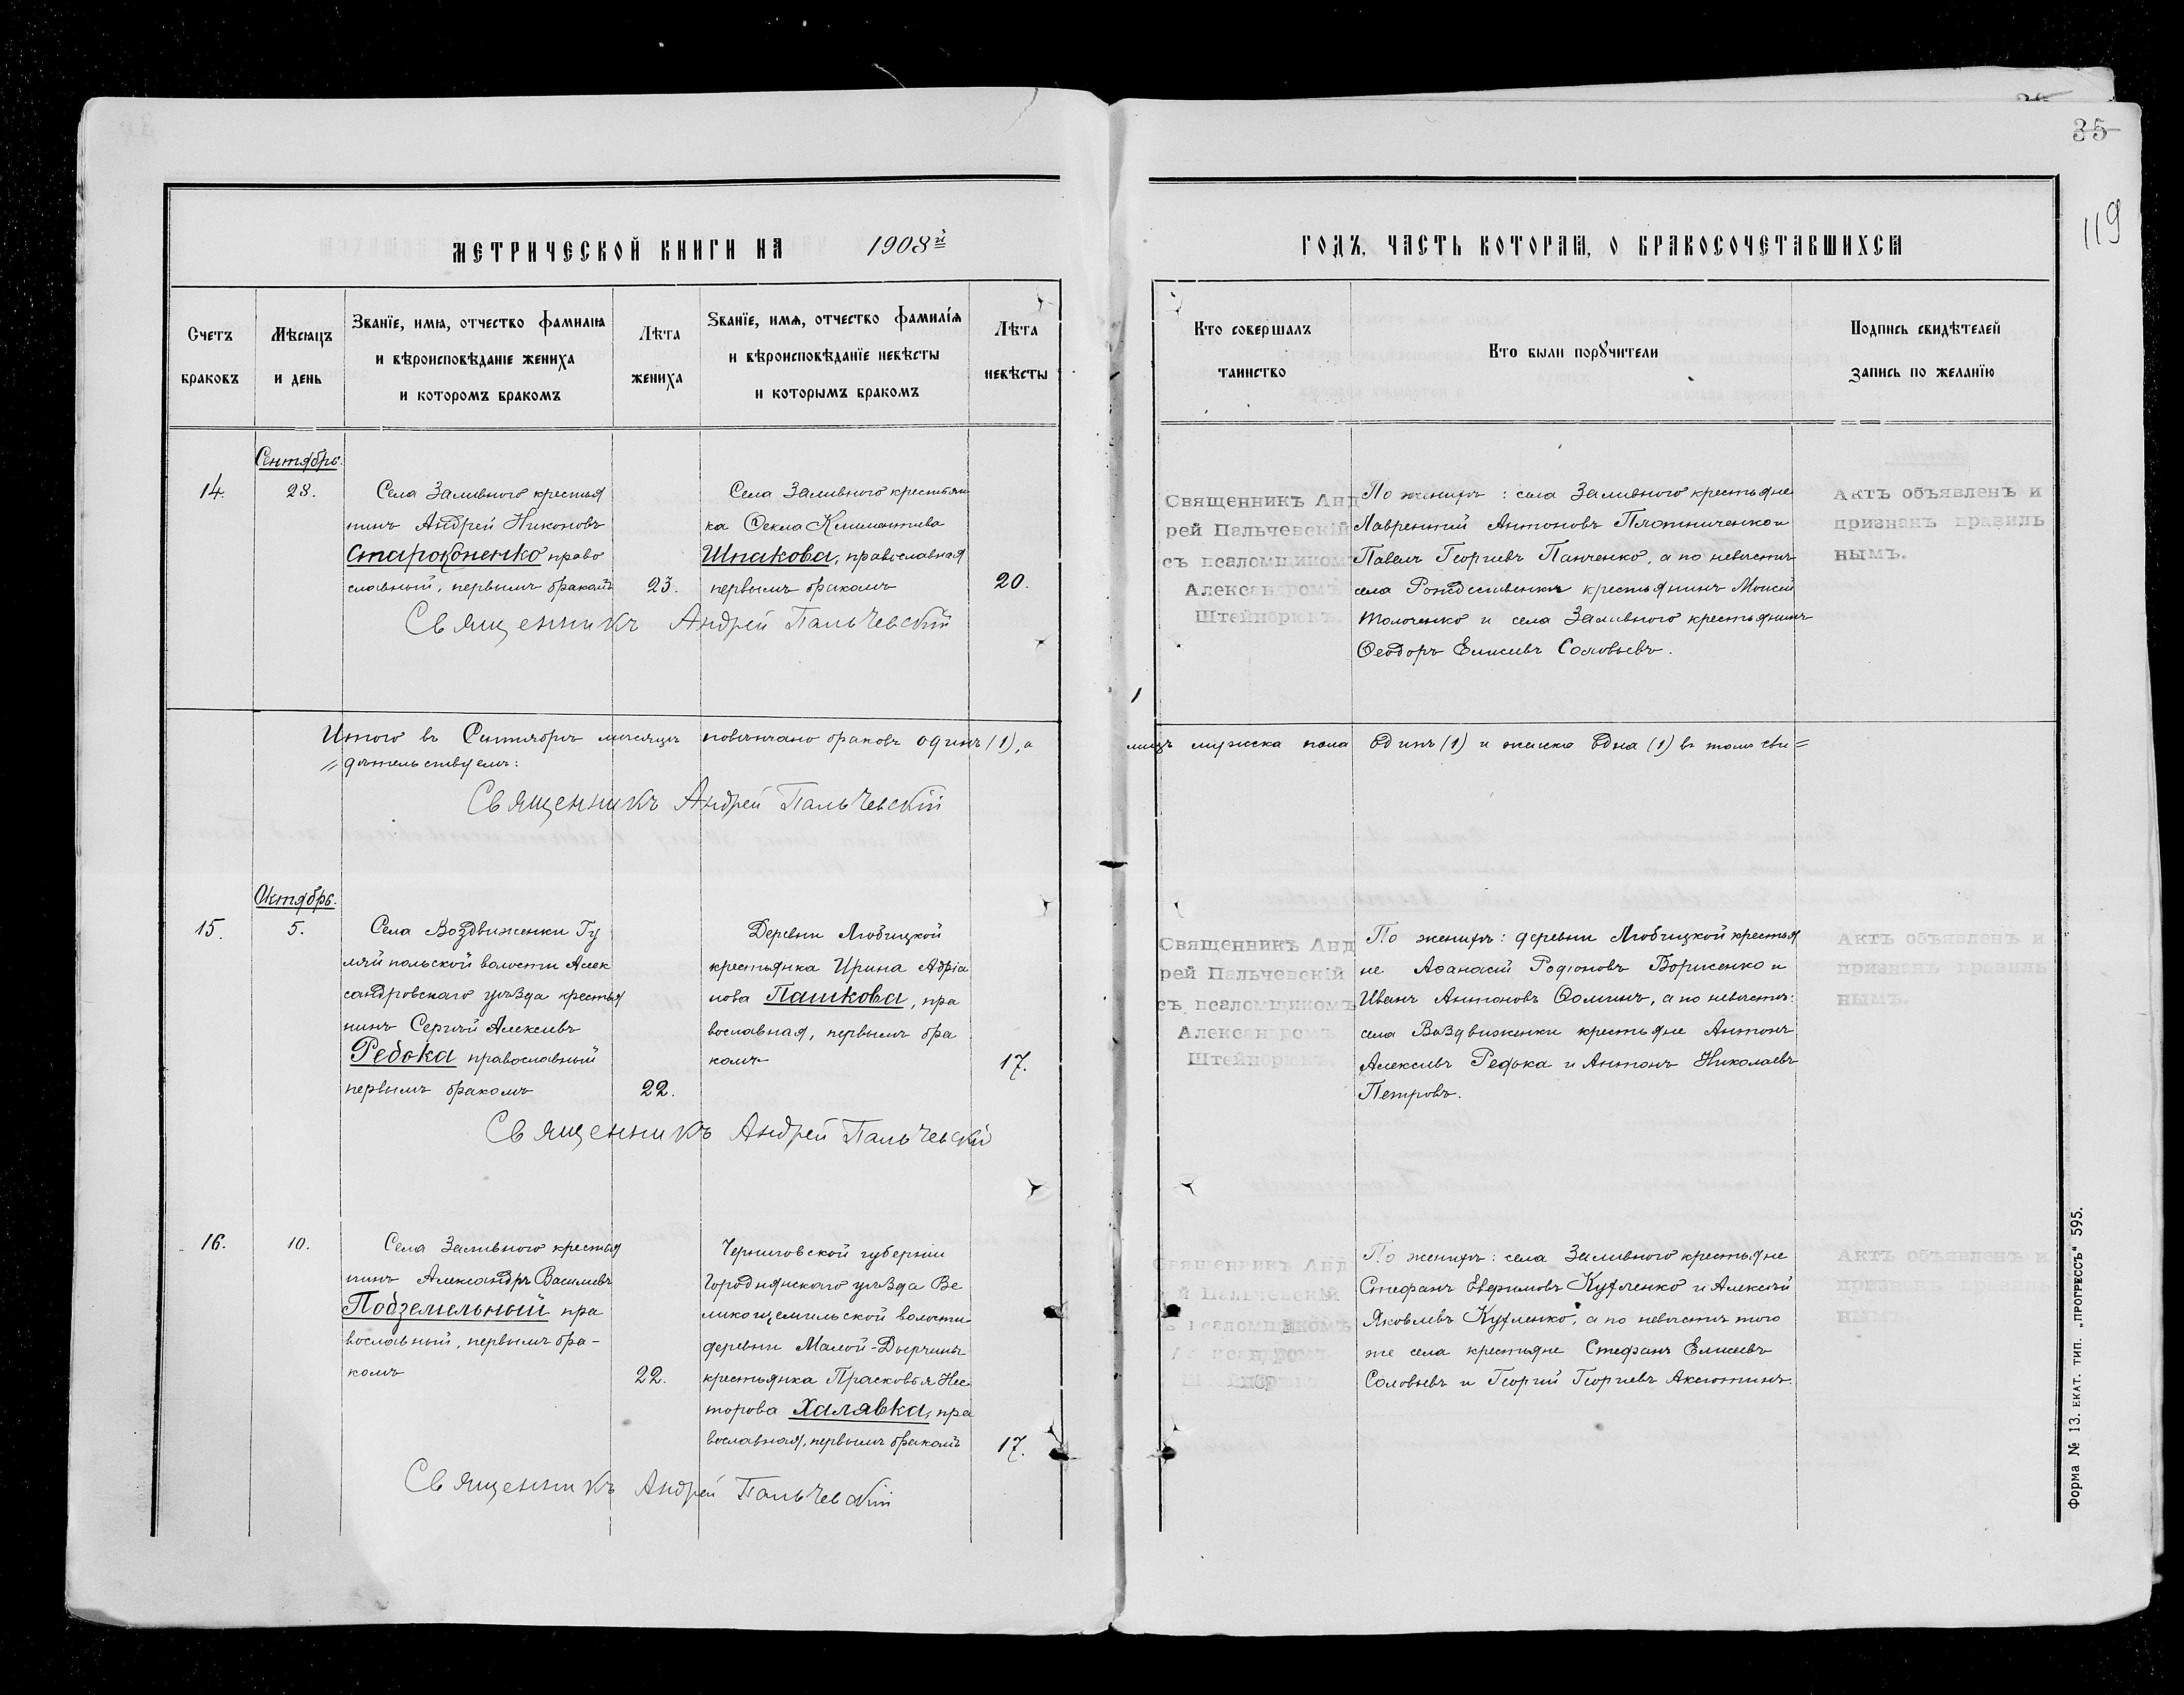 35
119
МЕТРИЧЕСКОЙ КНИГИ НА 1908й
ГОДЪ, ЧАСТЬ КОТОРАЯ, О БРАКОСОЧЕТАВШИХСЯ
Счетъ
браковъ
Мѣсяцъ
и день
Званїе, имя, отчество фамилїя
и вѣроисповѣданїе жениха
и которомъ бракомъ
Лѣта
жениха
Званїе, имя, отчество фамилїя
и вѣроисповѣданїе невѣсты
и которымъ бракомъ
Лѣта
невѣсты
Кто совершалъ
таинство
Кто были поручители
Подпись свидѣтелей
запись по желанїю
Сентябрь.
14.
28.
Села Заливного крестья
нинъ Андрей Никоновъ
Староконенко право
славный, первымъ бракомъ
23.
Села Заливного крестьян
ка Ѳекла Климантива
Шпакова, православная
первымъ бракомъ
20.
Священникъ Анд
рей Пальчевскій
съ псаломщикомъ
Александромъ
Штейнбрюкъ.
По женихѣ: села Заливного крестьяне
Лаврентий Антоновъ Плотниченко и
Павелъ Георгиевъ Панченко, а по невѣстѣ
села Рождественки крестьянинъ Моисей
Толоченко и села Заливного крестьянинъ
Ѳеодоръ Елисеевъ Соловьевъ.
Актъ объявленъ и
признанъ правиль
нымъ.
Священникъ Андрей Пальчевскій
Итого въ Сентябрѣ мѣсяцѣ повѣнчано браковъ одинъ (1), а
лицъ мужска пола одинъ (1) и женска одна (1) въ томъ сви=
=дѣтельствуемъ:
Священникъ Андрей Пальчевскій
Октябрь.
15.
5.
Села Воздвиженки Гу
ляйпольской волости Алек
сандровскаго уѣзда крестья
нинъ Сергѣй Алексѣевъ
Редька православный
первымъ бракомъ
22.
Деревни Любицкой
крестьянка Ирина Адріа
нова Пашкова, пра
вославная, первымъ бра
комъ
17.
Священникъ Анд
рей Пальчевскій
съ псаломщикомъ
Александромъ
Штейнбрюкъ.
По женихѣ: деревни Любицкой крестья
не Аѳанасій Родіоновъ Борисенко и
Иванъ Антоновъ Ѳоминъ, а по невѣстѣ:
села Воздвиженки крестьяне Антонъ
Алексѣевъ Редька и Антонъ Николаевъ
Петровъ.
Актъ объявленъ и
признанъ правиль
нымъ.
Священникъ Андрей Пальчевскій
16.
10.
Села Заливного крестья
нинъ Александръ Василиевъ
Подземельный пра
вославный, первымъ бра-
комъ
22.
Черниговской губерніи
Городнянскаго уѣзда Ве
ликощемильской волости
деревни Малой-Дырчины
крестьянка Прасковья Нес
торова Халявка, пра
вославная, первымъ бракомъ
17.
Священникъ Анд
рей Пальчевскій
съ псаломщикомъ
Александромъ
По женихѣ: села Заливного крестьяне
Стефанъ Евфимовъ Куфленко и Алексѣй
Яковлевъ Куфленко, а по невѣстѣ того
же села крестьяне Стефанъ Елисеевъ
Соловьевъ и Георгій Георгиевъ Аксютинъ.
Актъ объявленъ и
признанъ правиль
нымъ.
Священникъ Андрей Пальчевскій
Форма № 13. ЕКАТ. ТИП. „ПРОГРЕССЪ" 595.